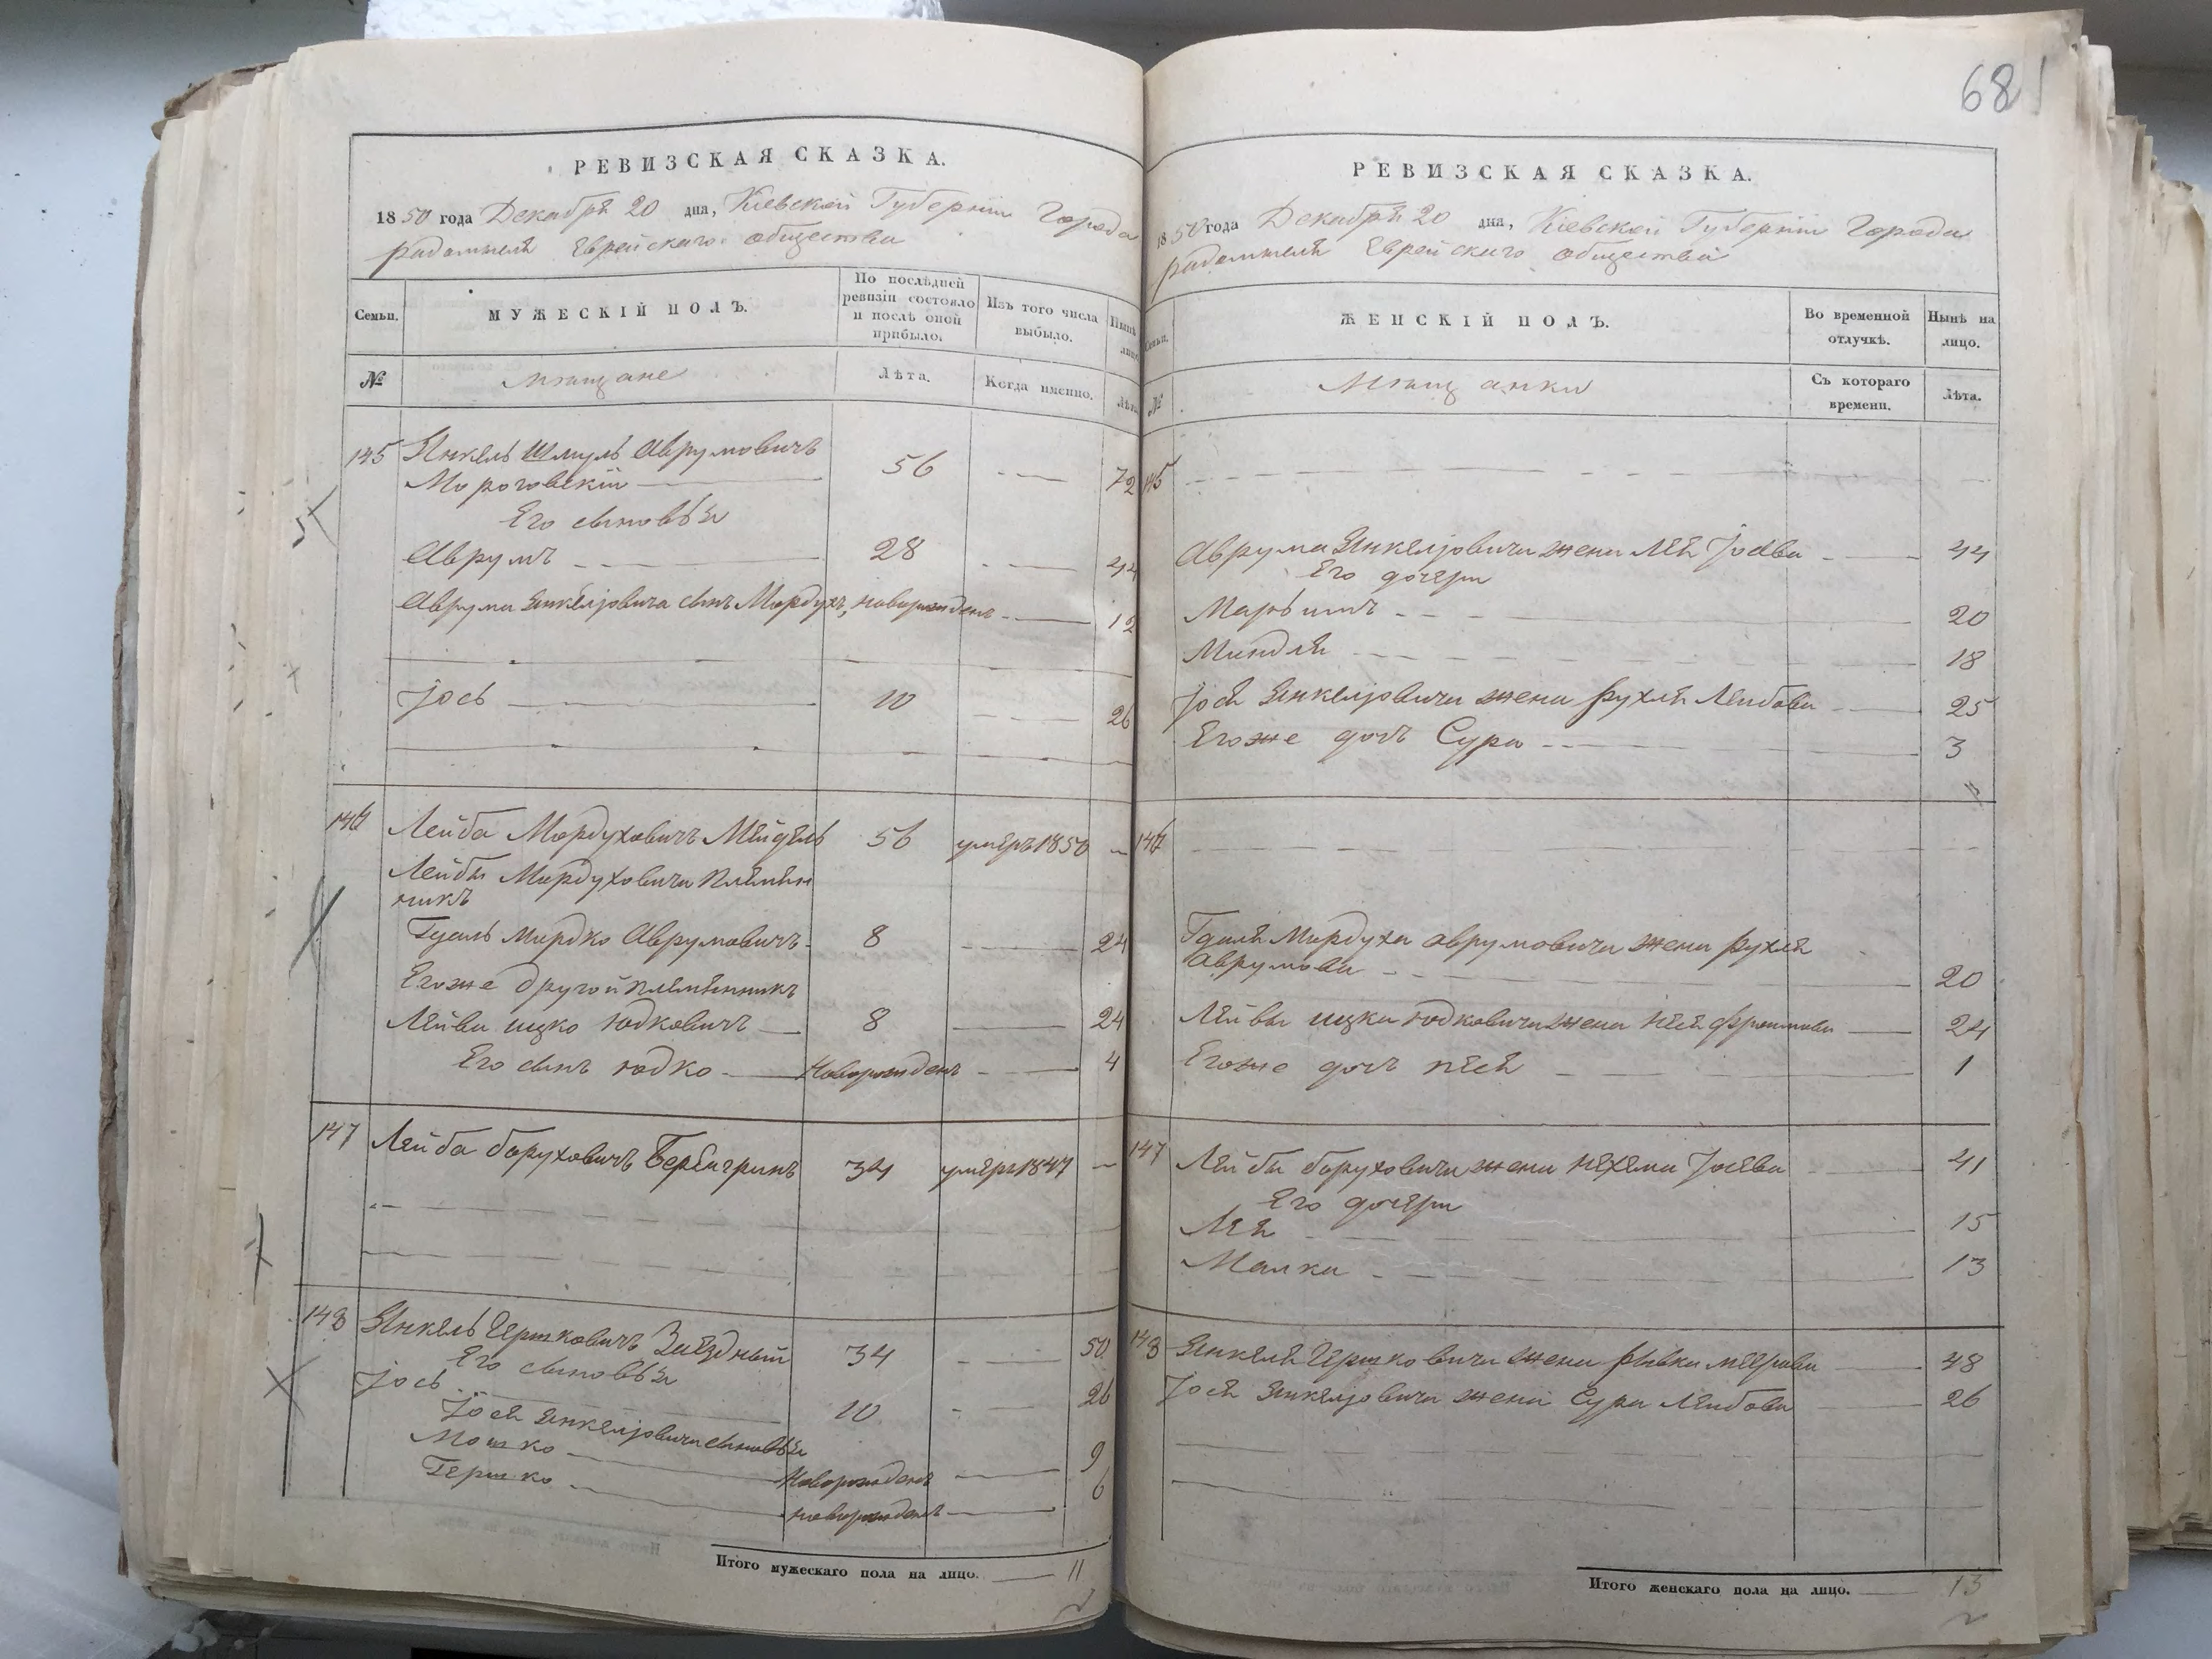 681
РЕВИЗСКАЯ СКАЗКА.
1850 года Декабря 20 дня, Кіевской Губерніи Города
Радомысля Еврейскаго общества
Семьи.
МУЖЕСКІЙ ПОЛЪ.
По послѣдней
ревизіи состояло
и послѣ оной
прибыло.
Изъ того числа
выбыло.
Нынѣ
лицо
№
мѣщане
Лѣта.
Когда именно.
Лѣта
145 Янкель Шмуль Аврумовичъ
Мороговскій 56 72
Его сыновья
Аврумъ 28 44
Аврума Янкелjовича сынъ Мордухъ, новорожденъ 12
Jось 10 26
146 Лейба Мордуховичъ Мейдель 56 умеръ 1850
Лейбы Мордуховича племен
никъ
Гдаль Мордко Аврумовичъ 8 24
Егоже другой племенникъ
Лейви ицко Юдковичъ 8 24
Его сынъ Юдко Новорожденъ 4
147 Лейба Боруховичъ 34 умеръ 1847
148 Янкель Гершковичъ Заѣздный 34 50
Его сыновья
Jось 10 26
Jося Янкелjовича сыновья
Мошко Новорожденъ 9
Гершко новорожденъ 6
Итого мужескаго пола на лицо. 11
РЕВИЗСКАЯ СКАЗКА.
1850 года Декабря 20 дня, Кіевской Губерніи Города
Радомысля Еврейскаго общества
Семьи.
ЖЕНСКІЙ ПОЛЪ.
Во временной
отлучкѣ.
Нынѣ на
лицо.
№
Мѣщанки
Съ котораго
времени.
Лѣта.
145
Аврума Янкелjовича жена Лея Jосева 44
Его дочери
Марьимъ 20
Миндля 18
Jося Янкелjовича жена Рухля Лейбова 25
Егоже дочь Сура 3
146
Гдаля Мордуха Аврумовича жена Рухля
Аврумова 20
Лейвы ицка Юдковича жена Неся Фроимова 24
Егоже дочь Песя 1
147 Лейбы Боруховича жена Нехема Jосева 41
Его дочери
Лея 15
Малка 13
148 Янкеля Гершковича жена Рывка Меерова 48
Jося Янкелjовича жена Сура Лейбова 26
Итого женскаго пола на лицо. 13